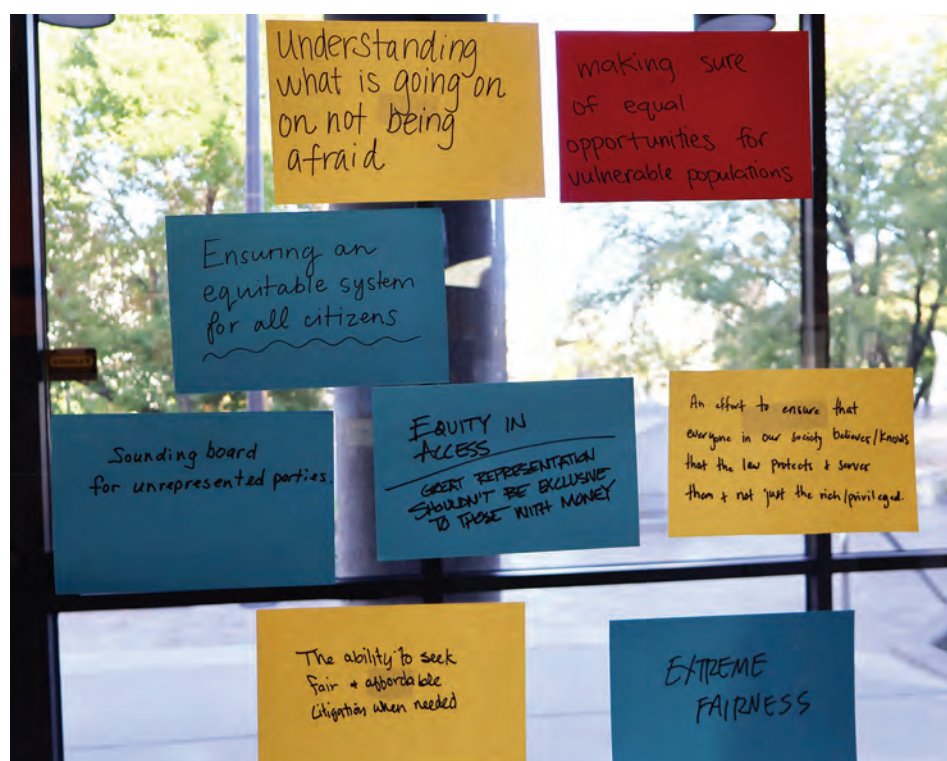 Understanding
what is going on
on not being
afraid
making sure
of equal
opportunities for
vulnerable populations
Ensuring an
equitable system
for all citizens
Sounding board
for unrepresented parties.
EQUITY IN
ACCESS
GREAT REPRESENTATION
SHOULDN'T BE EXCLUSIVE
TO THOSE WITH MONEY
An effort to ensure that
everyone in our society believes/knows
that the law protects & serves
them & not just the rich/privileged.
The ability to seek
Fair & affordable
Litigation when needed
EXTREME
FAIRNESS